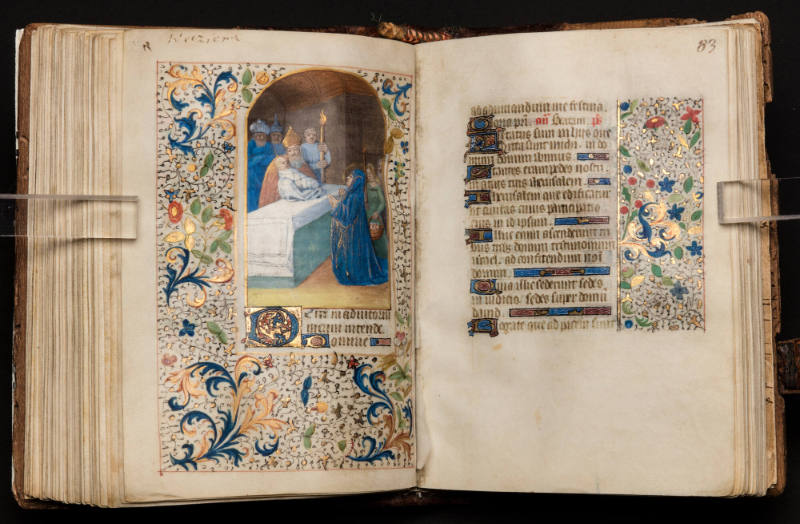 Deus in adiutori
um meum intende
Domine
83
ad adiuuandum me festina
Letatus sum in hijs que
dicta sunt michi in do
mum domini ibimus
Stantes erant pedes nostri
in atrijs tuis iherusalem
Iherusalem que edificatur
ut ciuitas cuius participatio
eius in id ipsum
Illuc enim ascenderunt tri
bus tribus domini testimonium
israel ad confitendum nomini
domini
Quia illic sederunt sedes
in iudicio sedes super domum
dauid
Rogate que ad pacem sunt